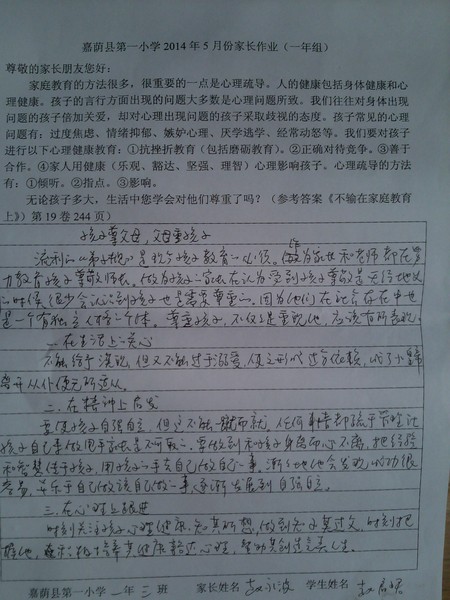 嘉荫县第一小学2014年5月份家长作业（一年组）
尊敬的家长朋友您好：
家庭教育的方法很多，很重要的一点是心理疏导。人的健康包括身体健康和心
理健康。孩子的言行方面出现的问题大多数是心理问题所致。我们往往对身体出现
问题的孩子倍加关爱，却对心理出现问题的孩子采取歧视的态度。孩子常见的心理
问题有：过度焦虑、情绪抑郁、嫉妒心理、厌学逃学、经常动怒等。我们要对孩子
进行以下心理健康教育：①抗挫折教育（包括磨砺教育）。②正确对待竞争。③善于
合作。④家人用健康（乐观、豁达、坚强、理智）心理影响孩子。心理疏导的方法
有：①倾听。②指点。③影响。
无论孩子多大，生活中您学会对他们尊重了吗？（参考答案《不输在家庭教育
上》）第19卷244页）
孩子尊父母，父母重孩子
流利的《弟子规》是我今孩子教育的必修。做为家长和老师都在努
力教育孩子尊敬师长。做为孩子的家长在认为受到孩子尊敬是天经地义
的时候，很少会认识到孩子也是需要尊重的。因为他们在社会存在中也
是一个有独立人格的个体。尊重孩子，不仅是重视他，应该有所表现。
一、在生活上关心
不能给予漠视，但又不能过于溺爱，使之形成过分依赖，成了小皇帝
离开从仆便无所适从。
二、在精神上启发
要使孩子自强自立，但这不能一蹴而就，任何事情都疏于管理让
孩子自己去做甩手家长是不可取的，要做到和孩子身离而心不离，把经验
和智慧传于孩子，用孩子的手去自己做自己的事，渐渐地他会发现成功很
容易，并乐于自己做该自己做的事，逐渐发展到自强自立。
三、在心理上跟进
时刻关注孩子心理健康，知其所想，做到知子莫过父，时刻把
握他，培养其健康豁达心理，帮助其创造完美人生。
嘉荫县第一小学 一年 三 班 家长姓名 赵永波 学生姓名 赵